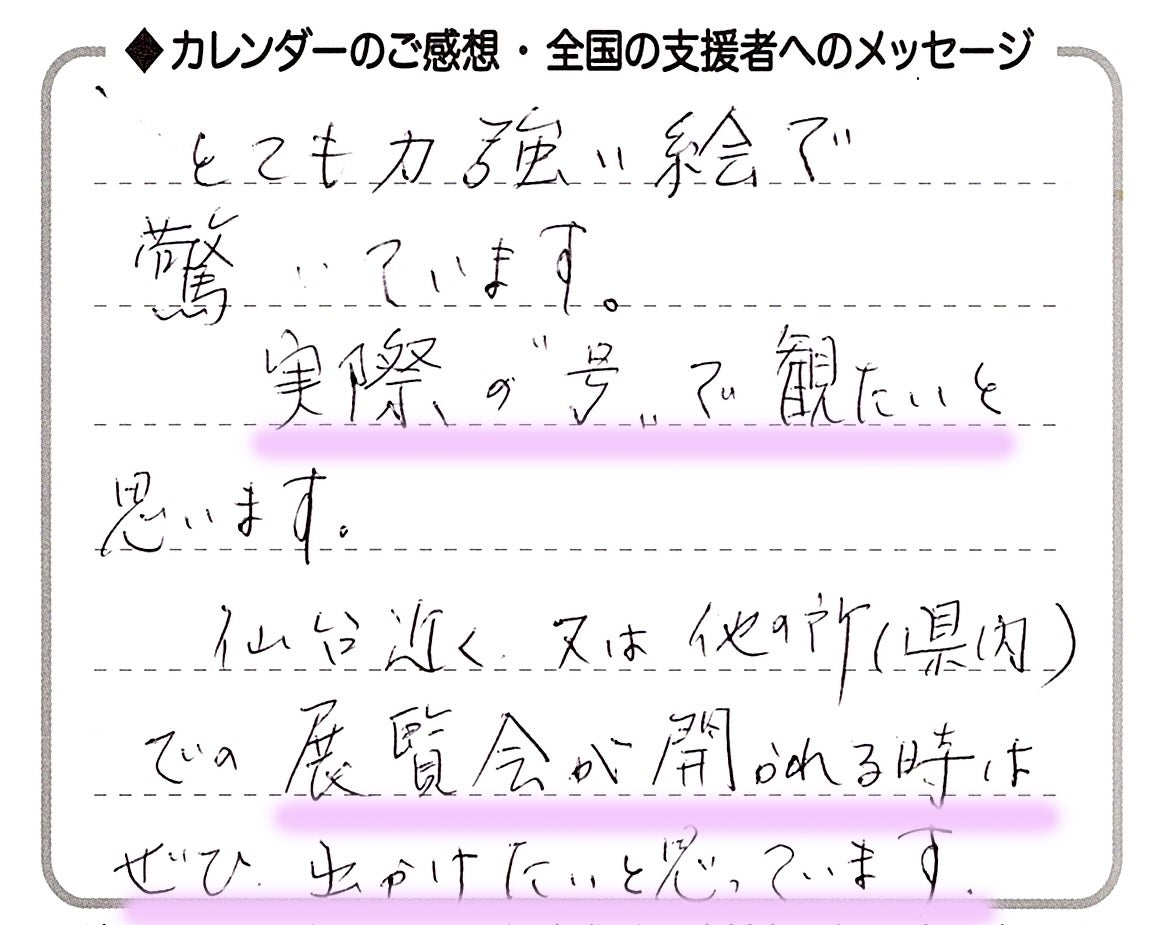 ◆カレンダーのご感想・全国の支援者へのメッセージ
とても力強い絵で
驚いています。
実際の〝号〟で観たいと
思います。
仙台近く又は他の所(県内)
での展覧会が開かれる時は
ぜひ出かけたいと思っています.